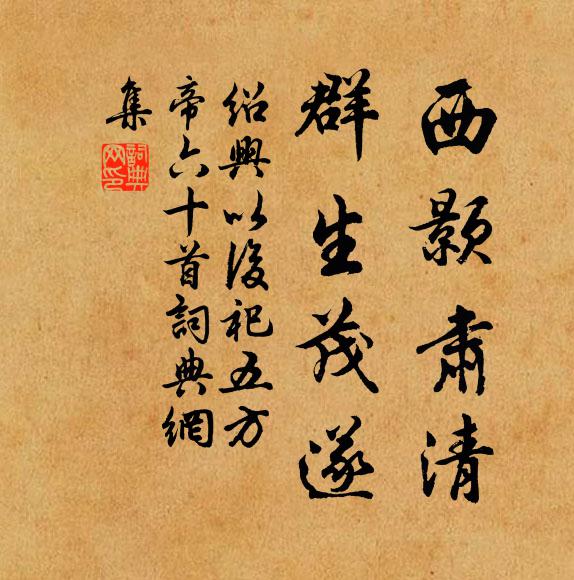 西顥肅清
群生茂遂
紹興以後祀五方
帝六十首詞典網
集
詞典
网印